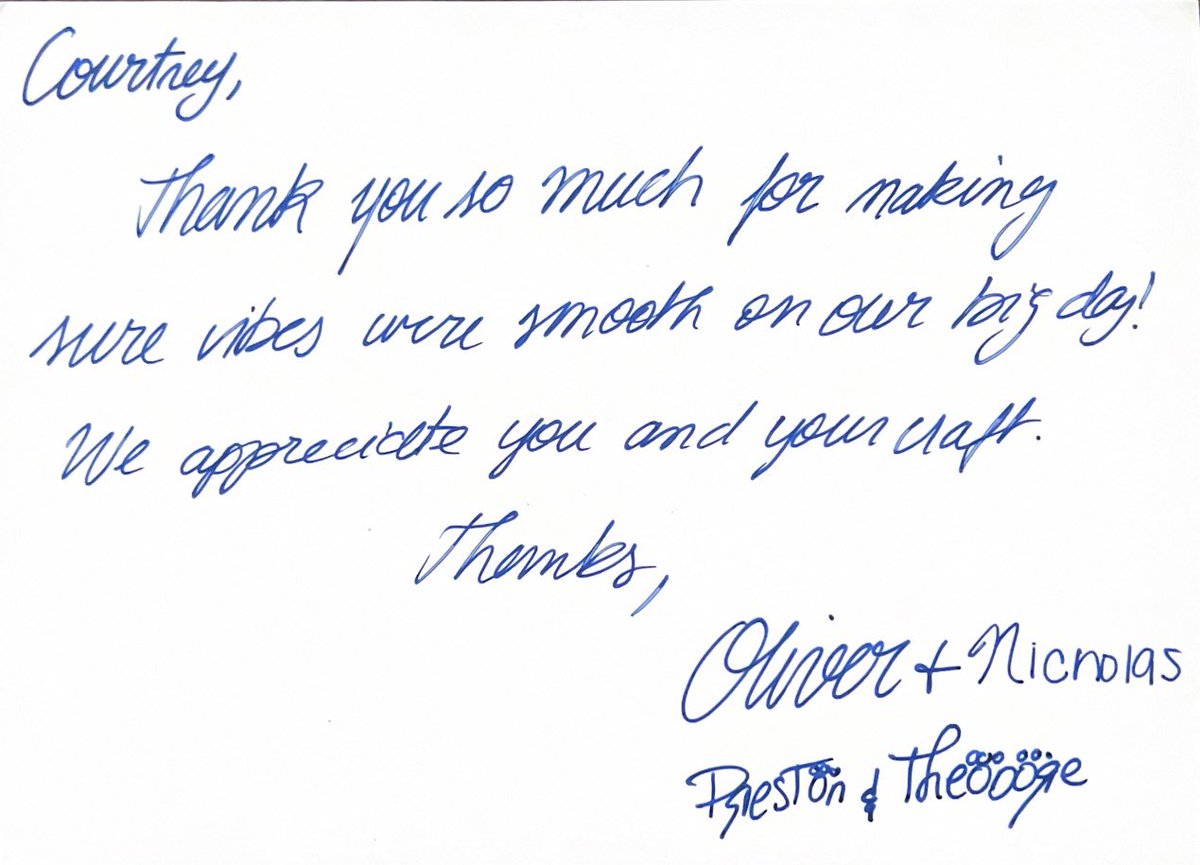 Courtney,
Thank you so much for making
sure vibes were smooth on our big day!
We appreciate you and your craft.
Thanks,
Oliver + Nicholas
Preston &